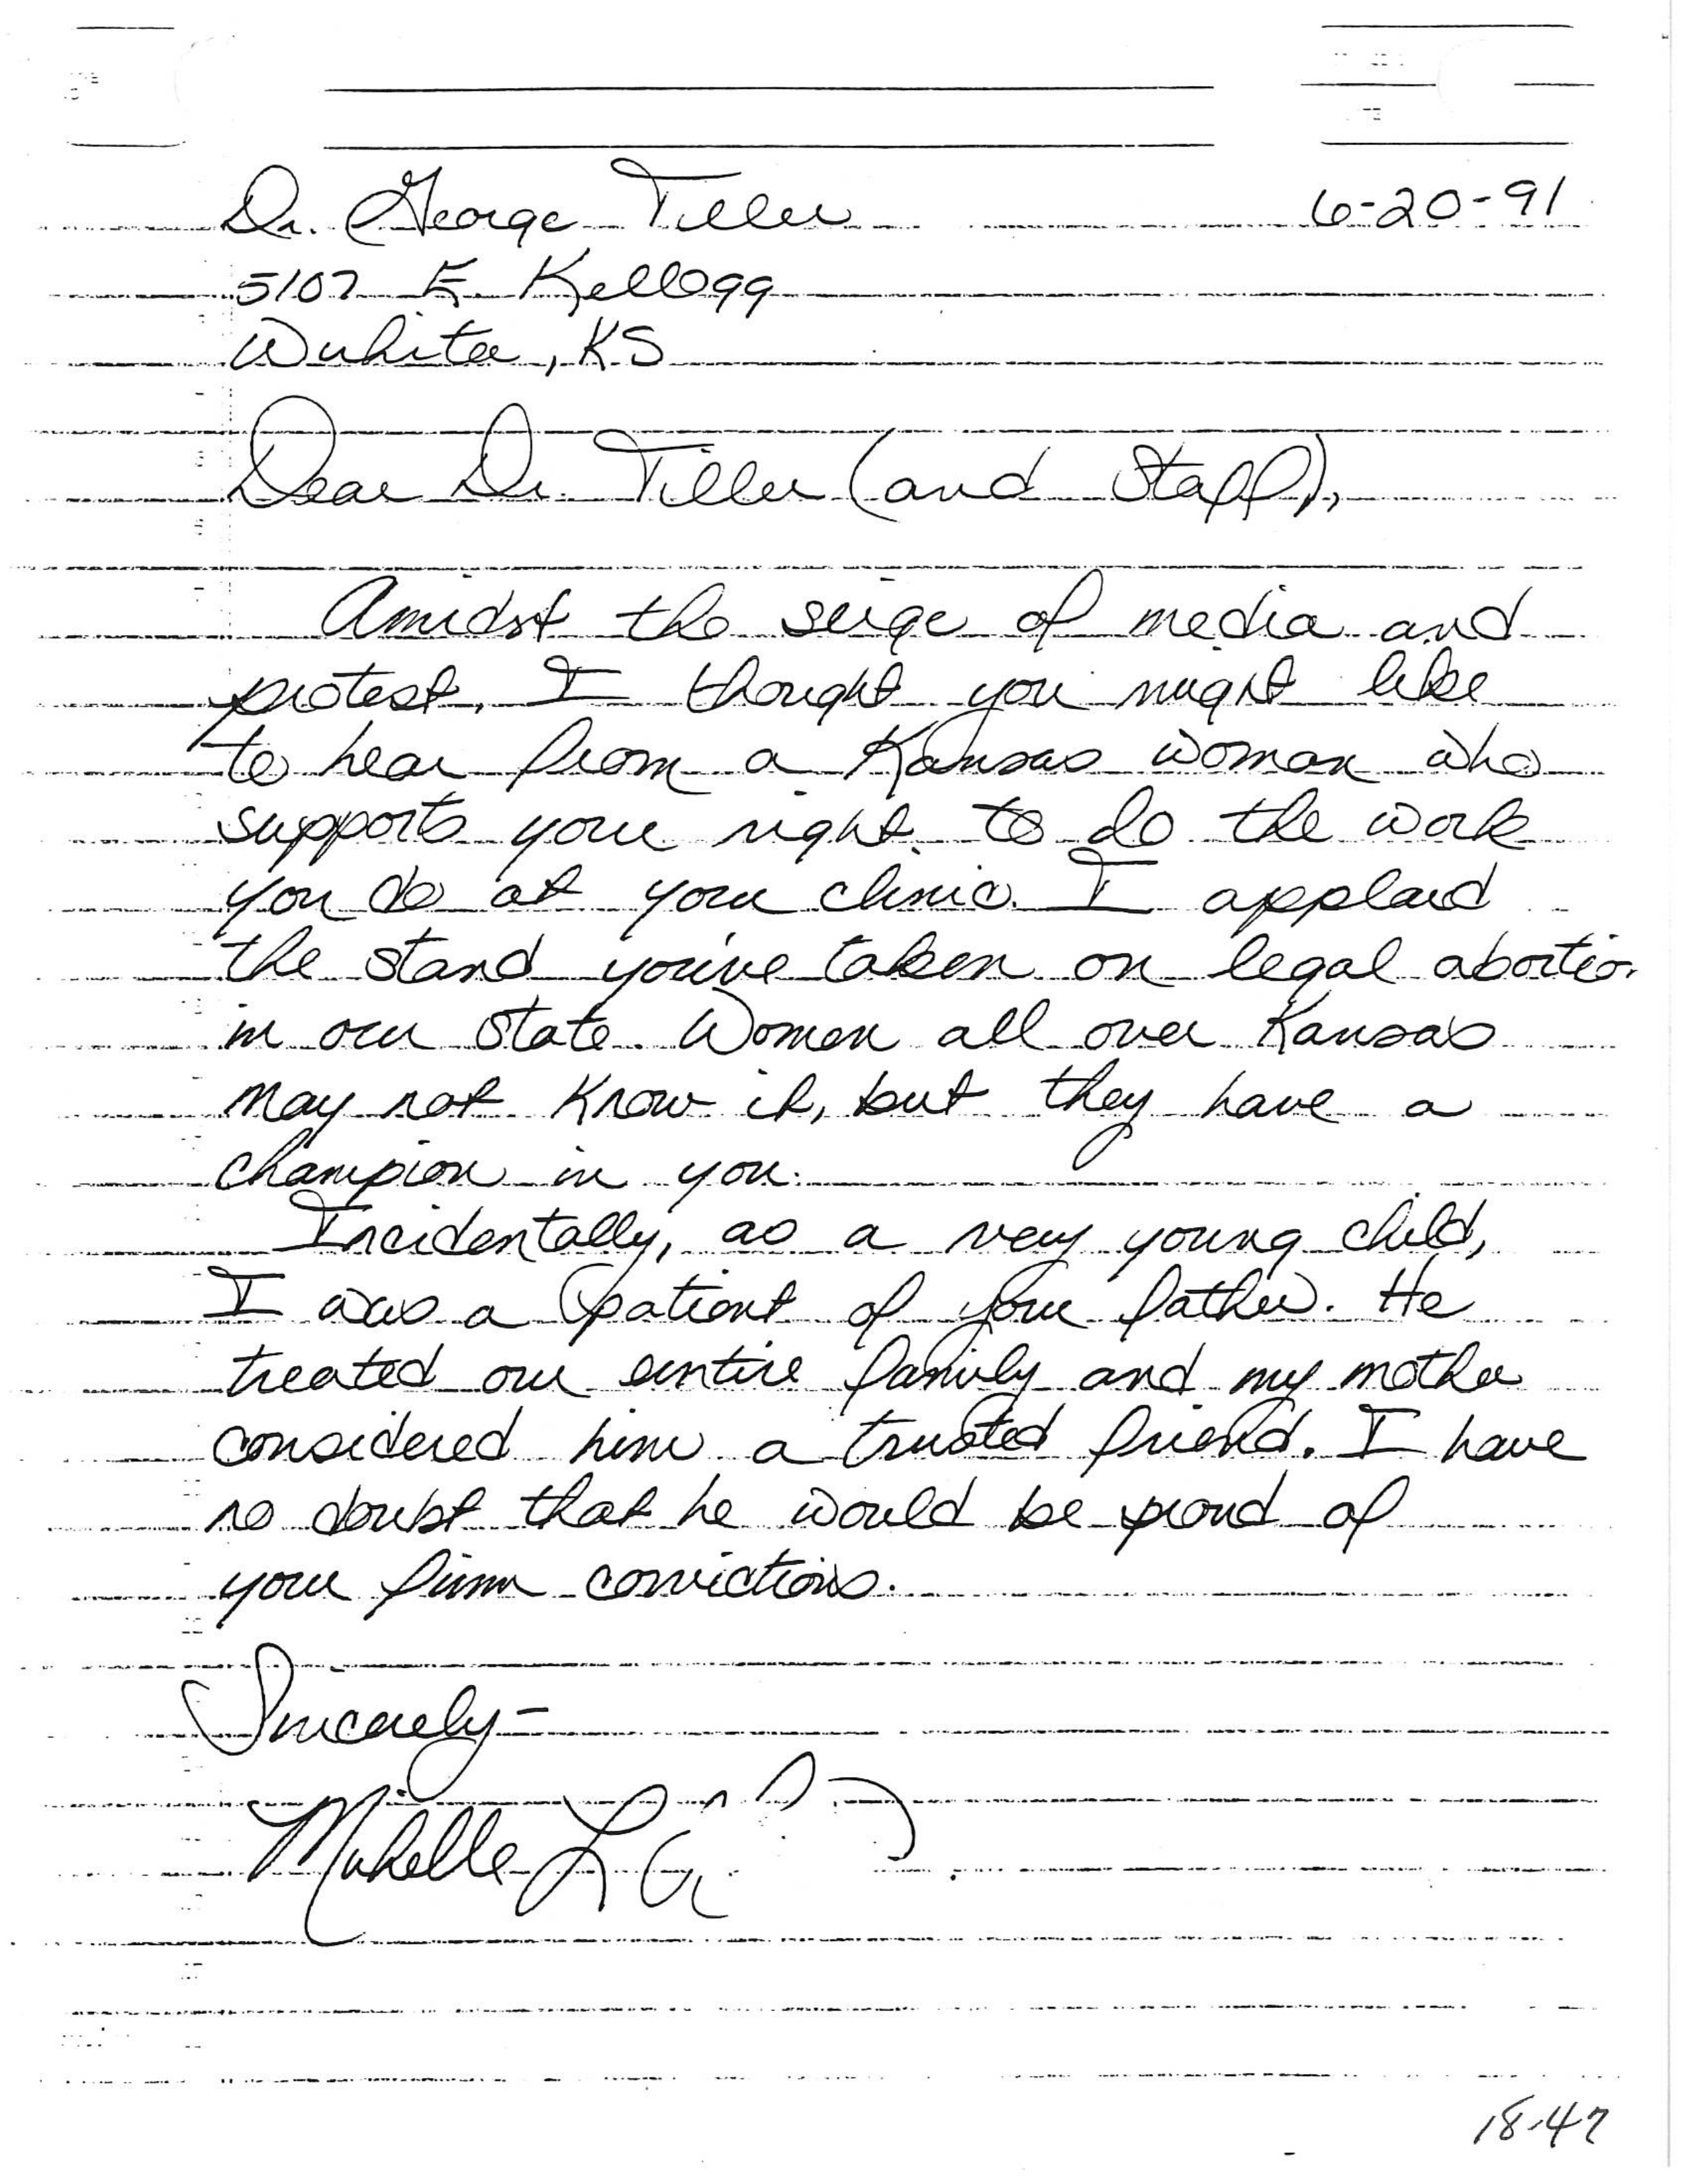 Dr. George Tiller 6-20-91
5107 E. Kellogg
Wichita, KS
Dear Dr. Tiller (and Staff),
Amidst the seige of media and
protest, I thought you might like
to hear from a Kansas woman who
supports your right to do the work
you do at your clinic. I applaud
the stand you've taken on legal abortion
in our state. Women all over Kansas
may not know it, but they have a
champion in you.
Incidentally, as a very young child,
I was a patient of your father. He
treated our entire family and my mother
considered him a trusted friend. I have
no doubt that he would be proud of
your firm convictions.
Sincerely-
Michelle L
18-47